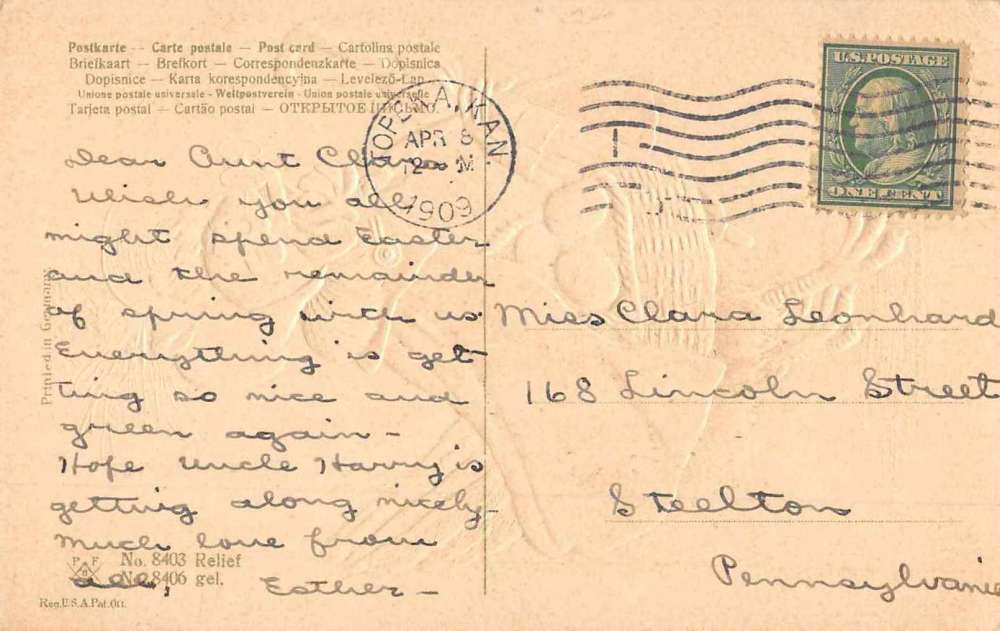 Postkarte — Carte postale — Post card — Cartolina postale
Briefkaart — Brefkort — Correspondenzkarte — Dopisnica
Dopisnice — Karta korespondencyjna — Levelező-Lap
Unione postale universale - Weltpostverein - Union postale universelle
Tarjeta postal — Cartão postal — ОТКРЫТОЕ ПИСЬМО
TOPEKA, KAN.
APR 8
12 M
1909
U.S. POSTAGE
ONE CENT
Dear Aunt Clara
Wish you all
might spend Easter
and the remainder
of spring with us.
Everything is get
ting so nice and
green again –
Hope Uncle Harry is
getting along nicely–
Much love from
all, Esther –
Miss Clara Leonhard
168 Lincoln Street
Steelton
Pennsylvania
Printed in Germany
P F B
No. 8403 Relief
No. 8406 gel.
Reg. U.S.A. Pat. Off.